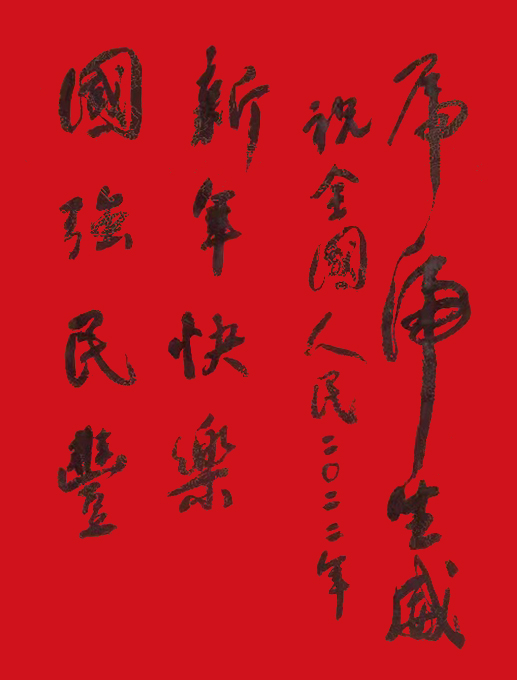 虎虎生威
祝全國人民二〇二二年
新年快樂
國強民豐